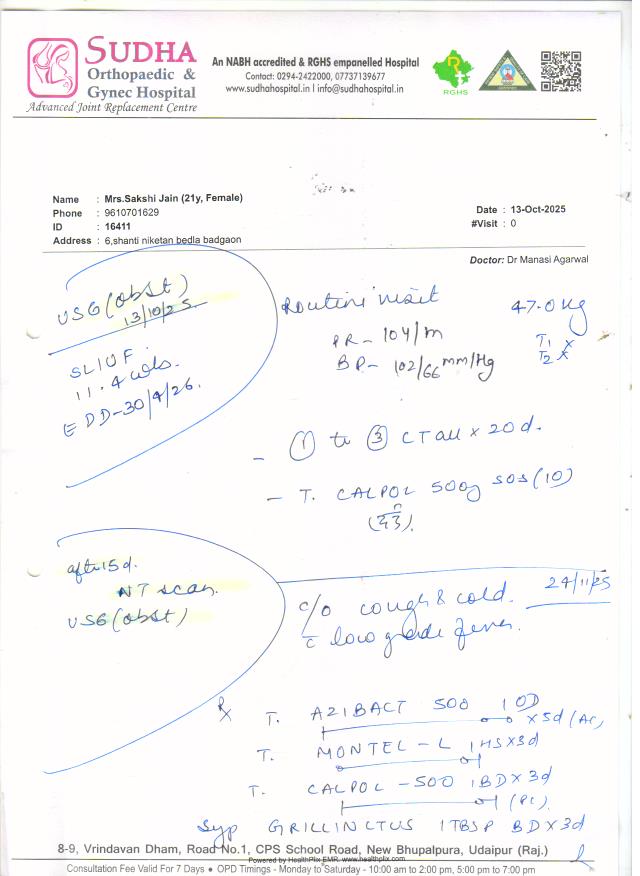 SUDHA
Orthopaedic &
Gynec Hospital
Advanced Joint Replacement Centre
An NABH accredited & RGHS empanelled Hospital
Contact: 0294-2422000, 07737139677
www.sudhahospital.in | info@sudhahospital.in
RGHS
Name : Mrs.Sakshi Jain (21y, Female)
Phone : 9610701629
ID : 16411
Address : 6,shanti niketan bedla badgaon
Date : 13-Oct-2025
#Visit : 0
Doctor: Dr Manasi Agarwal
USG (obst)
13/10/25.
SLIUF.
11.4 wks.
EDD-30/4/26.
Routine visit
47.0 kg
PR- 104/m
T1 x
T2 x
BP- 102/66 mm/Hg
- ① to ③ CT all x 20d.
- T. CALPOL 500g SOS (10)
after 15d.
NT scan.
USG (obst)
24/11/25
c/o cough & cold.
c low grade fever.
Rx
T. AZIBACT 500 1 OD x5d (AC)
T. MONTEL-L 1HS x 3d
T. CALPOL-500 1BD x 3d
(PC)
Syp GRILLINCTUS 1TBSP BD x 3d
8-9, Vrindavan Dham, Road No.1, CPS School Road, New Bhupalpura, Udaipur (Raj.)
Powered by HealthPlix EMR. www.healthplix.com
Consultation Fee Valid For 7 Days • OPD Timings - Monday to Saturday - 10:00 am to 2:00 pm, 5:00 pm to 7:00 pm